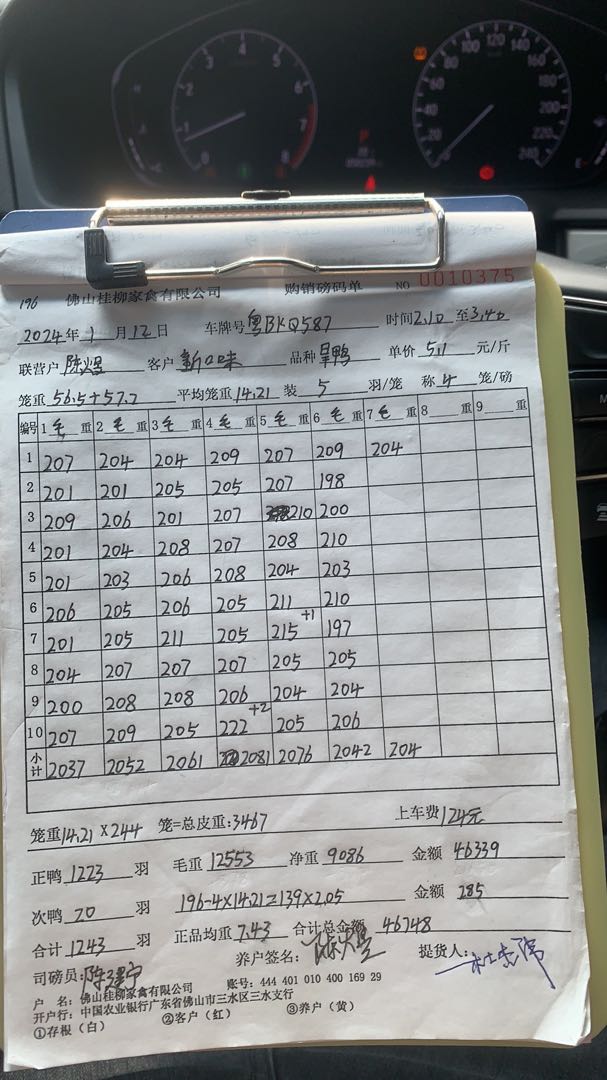 4
3
5
2
6
1
7
0
8
P
120
100
140
80
160
60
180
40
200
20
220
0
240
196 佛山桂柳家禽有限公司 购销磅码单 NO 0010375
2024年1月12日 车牌号粤BKQ587 时间2.10至3.40
联营户陈煜 客户新口味 品种旱鸭 单价5.1元/斤
笼重56.5+57.2 平均笼重14.21装5羽/笼 称4笼/磅
编号 1毛重 2毛重 3毛重 4毛重 5毛重 6毛重 7毛重 8重 9重
1 207 204 204 209 207 209 204
2 201 201 205 205 207 198
3 209 206 201 207 210 200
4 201 204 208 207 208 210
5 201 203 206 208 204 203
6 206 205 206 205 211 210
7 201 205 211 205 215+1 197
8 204 207 207 207 205 205
9 200 208 208 206 204 204
10 207 209 205 222+2 205 206
小计 2037 2052 2061 2081 2076 2042 204
笼重14.21×244 笼=总皮重:3467 上车费124元
正鸭1223羽 毛重12553 净重9086 金额46339
次鸭20羽 196-4×14.21=139×2.05 金额285
合计1243羽 正品均重7.43 合计总金额46748
司磅员:陈建宁 养户签名:陈煜 提货人:
户 名:佛山桂柳家禽有限公司 账号:444 401 010 400 169 29
开户行:中国农业银行广东省佛山市三水区三水支行
①存根(白) ②客户(红) ③养户(黄)